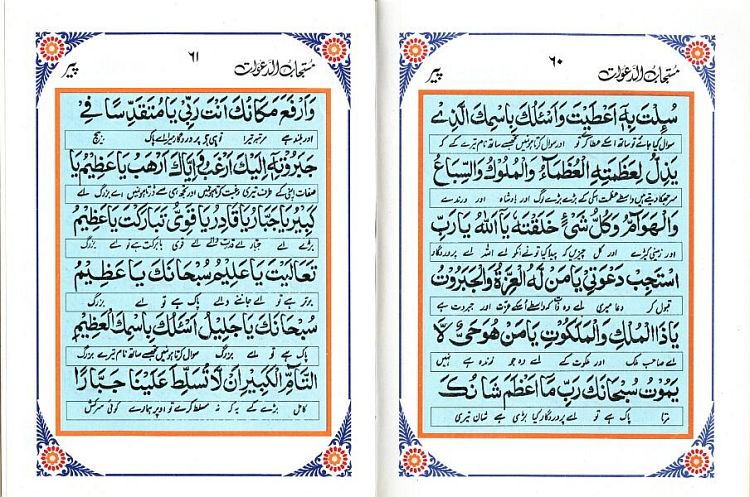 مستجاب الدعوات ۶۰ پیر
سُئِلْتَ بِهٖ اَعْطَيْتَ وَاَسْئَلُكَ بِاسْمِكَ الَّذِيْ
سوال کیا جائے تو ساتھ اسکے عطا کرے تو اور سوال کرتا ہوں میں تجھسے ساتھ نام تیرے کے کہ
يَذِلُّ لِعَظَمَتِهِ الْعُظَمَآءُ وَالْمُلُوْكُ وَالسِّبَاعُ
سر جھکا دیتے ہیں واسطے عظمت اسکی کے بڑے بڑے لوگ اور بادشاہ اور درندے
وَالْهَوَآمُّ وَكُلُّ شَيْءٍ خَلَقْتَهٗ يَا اَللّٰهُ يَا رَبِّ
اور زمینی کیڑے اور کل چیزیں کہ پیدا کیا تو نے انکو اے اللہ اے پروردگار
اسْتَجِبْ دَعْوَتِيْ يَا مَنْ لَهُ الْعِزَّةُ وَالْجَبَرُوْتُ
قبول کر دعا میری اے وہ ذات کہ واسطے اسکے عزت اور جبروت ہے
يَا ذَا الْمُلْكِ وَالْمَلَكُوْتِ يَا مَنْ هُوَ حَيٌّ لَّا
اے صاحب ملک اور ملکوت کے اے وہ جو زندہ ہے نہیں
يَمُوْتُ سُبْحَانَكَ رَبِّ مَا اَعْظَمَ شَانَكَ
مرتا پاک ہے تو اے پروردگار کیا بڑی ہے شان تیری
مستجاب الدعوات ۶۱ پیر
وَاَرْفَعَ مَكَانَكَ اَنْتَ رَبِّيْ يَا مُتَقَدِّسًا فِيْ
اور بلند ہے مرتبہ تیرا تو ہی ہے پروردگار میرا اے پاک بیچ
جَبَرُوْتِهٖ اِلَيْكَ اَرْغَبُ وَاِيَّاكَ اَرْهَبُ يَا عَظِيْمُ يَا
صفات اپنی کے طرف تیری رغبت کرتا ہوں میں اور تجھ ہی سے ڈرتا ہوں میں اے بزرگ اے
كَبِيْرُ يَا جَبَّارُ يَا قَادِرُ يَا قَوِيُّ تَبَارَكْتَ يَا عَظِيْمُ
بڑے اے جبار اے قدرت والے اے قوی بابرکت ہے تو اے بزرگ
تَعَالَيْتَ يَا عَلِيْمُ سُبْحَانَكَ يَا عَظِيْمُ
برتر ہے تو اے جاننے والے پاک ہے تو اے بزرگ
سُبْحَانَكَ يَا جَلِيْلُ اَسْئَلُكَ بِاسْمِكَ الْعَظِيْمِ
پاک ہے تو اے بزرگ سوال کرتا ہوں میں تجھسے ساتھ نام تیرے بزرگ
التَّآمِّ الْكَبِيْرِ اَنْ لَّا تُسَلِّطَ عَلَيْنَا جَبَّارًا
کامل بڑے کے یہ کہ نہ مسلط کرے تو اوپر ہمارے کوئی سرکش